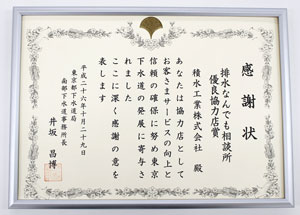 感謝状
排水なんでも相談所
優良協力店賞
積水工業株式会社 殿
あなたは協力店として
お客さまサービスの向上と
信頼の確保に努め東京
下水道の発展に寄与さ
れました
ここに深く感謝の意を
表します
平成二十六年十月二十九日
東京都下水道局
南部下水道事務所長
井坂 昌博